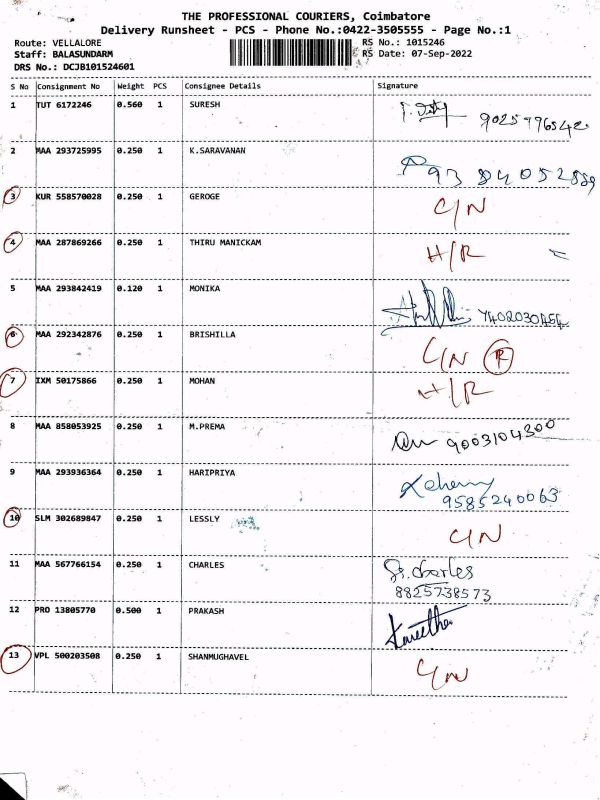 THE PROFESSIONAL COURIERS, Coimbatore
Delivery Runsheet - PCS - Phone No.:0422-3505555 - Page No.:1
Route: VELLALORE RS No.: 1015246
Staff: BALASUNDARM RS Date: 07-Sep-2022
DRS No.: DCJB101524601
S No Consignment No Weight PCS Consignee Details Signature
1 TUT 6172246 0.560 1 SURESH 90257796542
2 MAA 293725995 0.250 1 K.SARAVANAN 9384052889
3 KUR 558570028 0.250 1 GEROGE C/N
4 MAA 287869266 0.250 1 THIRU MANICKAM H/R
5 MAA 293842419 0.120 1 MONIKA 7402030454
6 MAA 292342876 0.250 1 BRISHILLA C/N R
7 IXM 50175866 0.250 1 MOHAN H/R
8 MAA 858053925 0.250 1 M.PREMA 9003104300
9 MAA 293936364 0.250 1 HARIPRIYA 9585240063
10 SLM 302689847 0.250 1 LESSLY C/N
11 MAA 567766154 0.250 1 CHARLES S. charles
8825738573
12 PRO 13805770 0.500 1 PRAKASH
13 VPL 500203508 0.250 1 SHANMUGHAVEL C/N